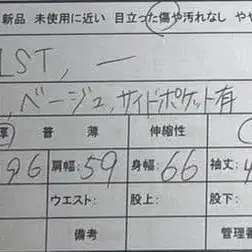 新品 未使用に近い 目立った傷や汚れなし やや
LST, ー
, ベージュ, サイドポケット有
厚 普 薄 伸縮性
96 肩幅:59 身幅:66 袖丈:4
ウエスト: 股上: 股下:
備考